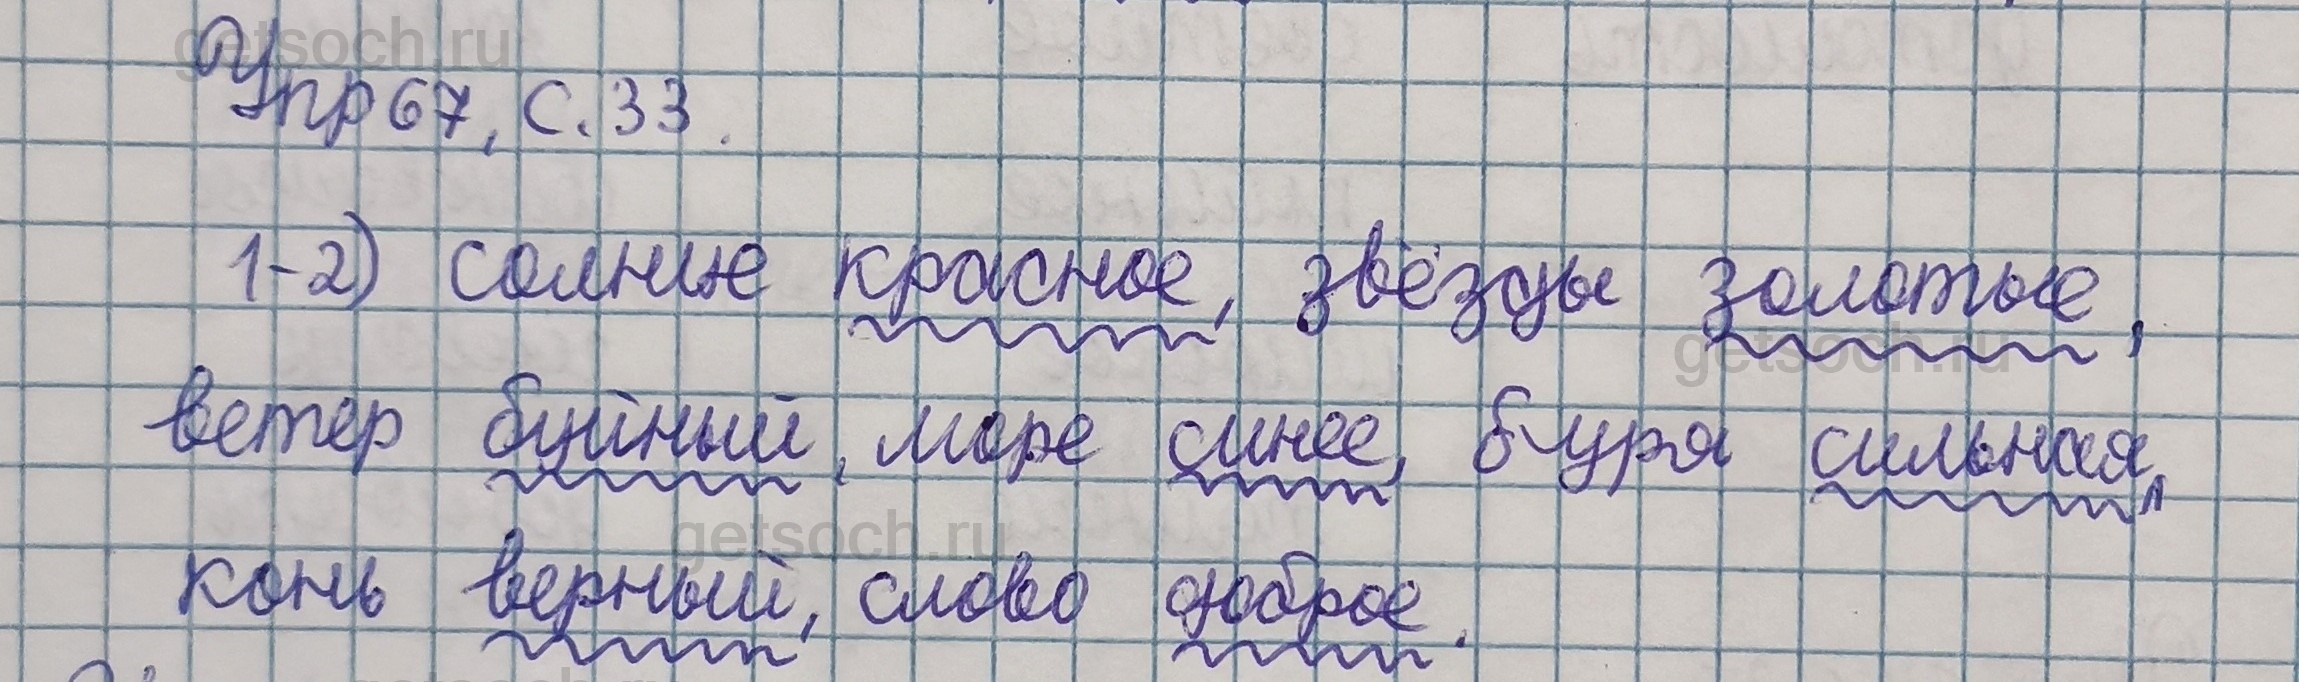 getsoch.ru
Упр 67, с. 33.
1-2) солнце красное, звёзды золотые,
getsoch.ru
ветер буйный, море синее, буря сильная,
getsoch.ru
конь верный, слово доброе.